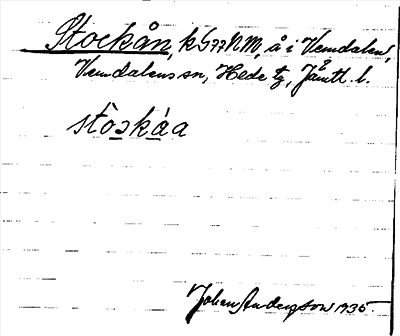 Stockån, k 5772 NM, å i Vemdalen,
Vemdalens sn, Hede tg, Jämtl. l.
stòskáa
Johan Anderzson 1935.